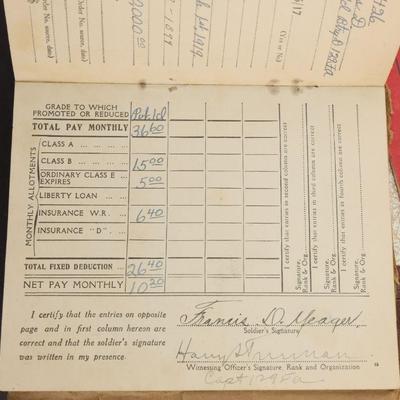 GRADE TO WHICH
PROMOTED OR REDUCED Pvt. 1cl
TOTAL PAY MONTHLY 36 60
MONTHLY ALLOTMENTS
CLASS A
CLASS B 15 00
ORDINARY CLASS E
EXPIRES 5 00
LIBERTY LOAN
INSURANCE W.R. 6 40
INSURANCE "D"
TOTAL FIXED DEDUCTION 26 40
NET PAY MONTHLY 10 20
I certify that entries in second column are correct
Signature,
Rank & Org.
I certify that entries in third column are correct
Signature,
Rank & Org.
I certify that entries in fourth column are correct
Signature,
Rank & Org.
I certify that the entries on opposite
page and in first column hereon are
correct and that the soldier's signature
was written in my presence.
Francis D. Meager,
Soldier's Signature
Harry S Truman
Witnessing Officer's Signature, Rank and Organization
Capt 129 FA